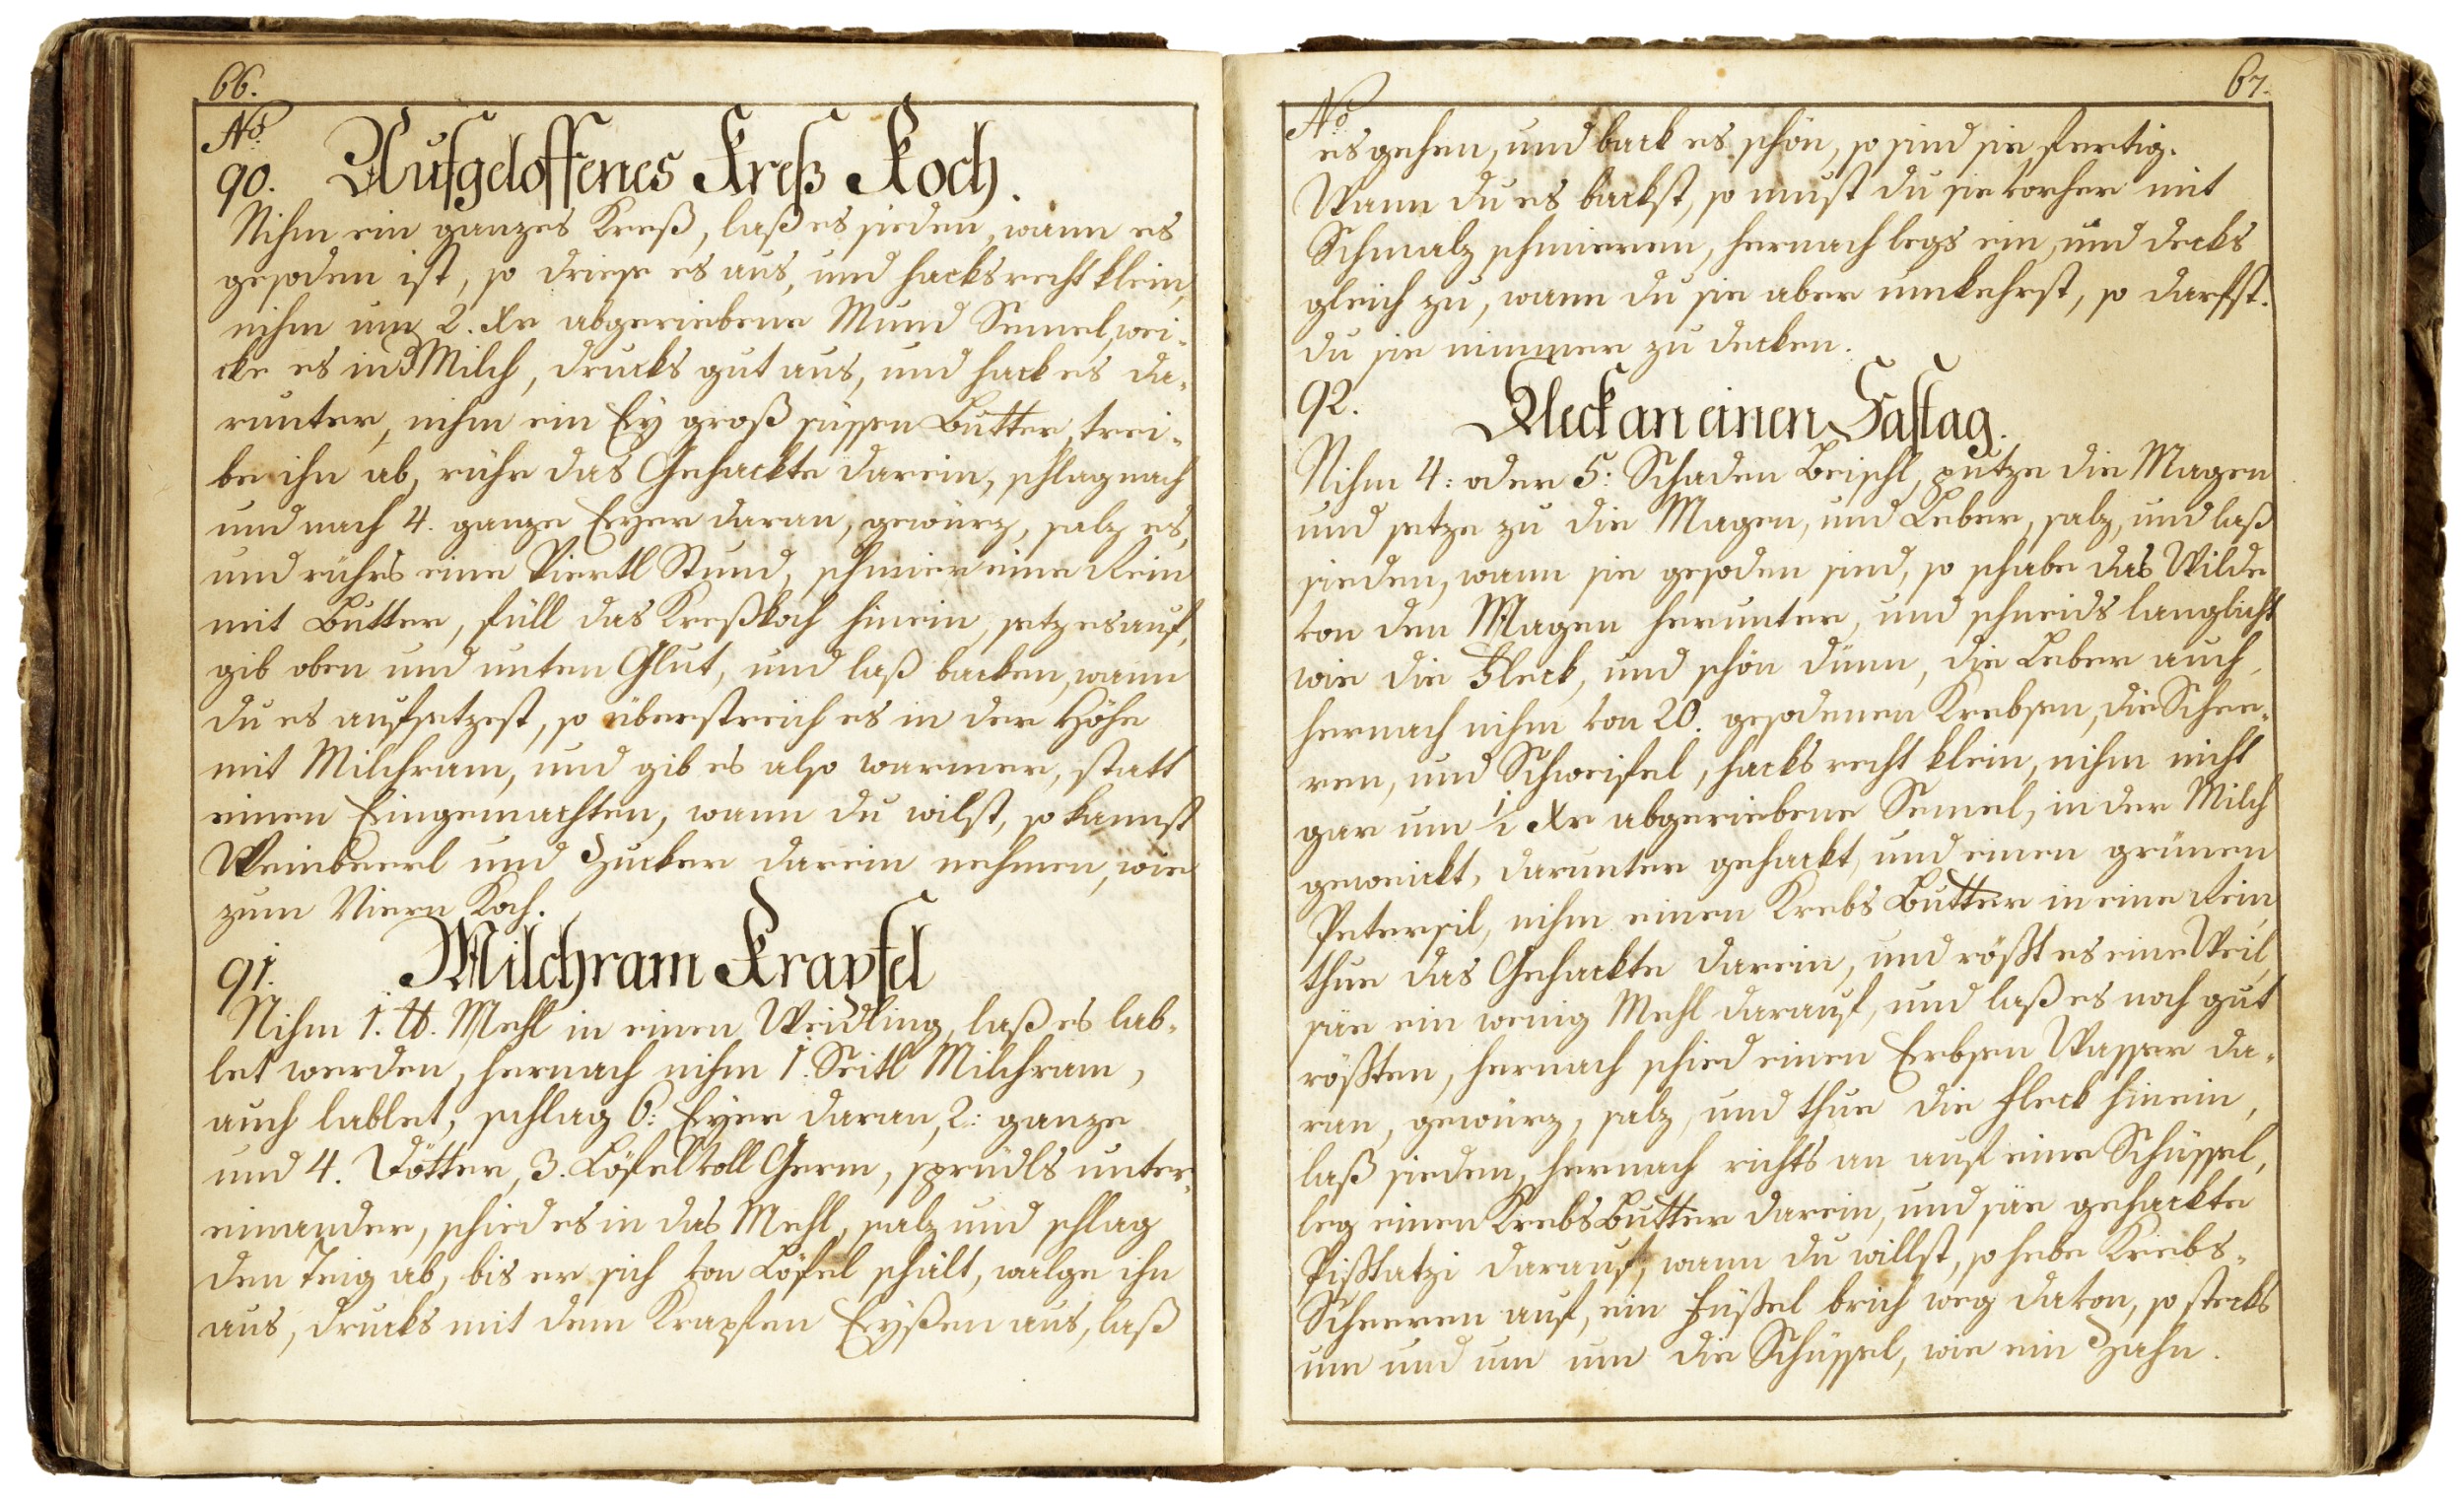 66.
No.
90. Aufgeloffenes Kreß Koch.
Nihm ein ganzes Kreß, laß es sieden, wann es
gesoden ist, so driese es aus, und hacks recht klein,
nihm um 2. Xr abgeriebene Mund Semel, wei-
cke es in d Milch, drucks gut aus, und hack es da-
runter, nihm ein Ey groß süssen Butter, trei-
be ihn ab, rühr das Gehackte darein, schlag nach
und nach 4. ganze Eyer daran, gewürz, salz es,
und rührs eine Viertl Stund, schmier eine Rein
mit Butter, füll das Kreßkoch hinein, setz es auf,
gib oben und unten Glut, und laß backen, wann
du es aufsetzest, so überstreich es in der Höhe
mit Milchram, und gib es also warmer, statt
einen Eingemachten, wann du wilst, so kannst
Weinbeerl und Zucker darein nehmen, wie
zum Niern Koch.
91. Milchram Krapfel
Nihm 1. ℔. Mehl in einen Weidling, laß es lab-
let werden, hernach nihm 1. Seitl Milchram,
auch lablet, schlag 6: Eyer daran, 2: ganze
und 4. Dötter, 3. Löfel voll Germ, sprudls unter-
einander, schied es in das Mehl, salz und schlag
den Teig ab, bis er sich von Löfel schält, walge ihn
aus, drucks mit dem Krapfen Eyßen aus, laß
67.
No
es gehen, und back es schön, so sind sie fertig.
Wann du es backst, so must du sie vorher mit
Schmalz schmieren, hernach legs ein, und decks
gleich zu, wann du sie aber umkehrst, so darfst
du sie nimmer zu decken.
92. Fleck an einen Fastag.
Nihm 4: oder 5: Schaden Beischl, putze die Magen
und setze zu die Magen, und Leber, salz, und laß
sieden, wann sie gesoden sind, so schabe das Wilde
von den Magen herunter, und schneids langlicht
wie die Fleck, und schön dünn, die Leber auch,
hernach nihm von 20. gesodenen Krebsen, die Schee-
ren, und Schweifel, hacks recht klein, nihm nicht
gar um 1/2 Xr abgeriebene Semel, in der Milch
geweickt, darunter gehackt, und einen grünen
Petersil, nihm einen Krebs Butter in eine Rein
thue das Gehackte darein, und rößt es eine Weil,
säe ein wenig Mehl darauf, und laß es noch gut
rößten, hernach schied einen Erbsen Wasser da-
ran, gewürz, salz, und thue die Fleck hinein,
laß sieden, hernach richts an auf eine Schüssel,
leg einen Krebs Butter darein, und säe gehackte
Pißtatzi darauf, wann du willst, so hebe Krebs-
Scheeren auf, ein Füßel brich weg davon, so stecks
um und um um die Schüssel, wie ein Zahn.